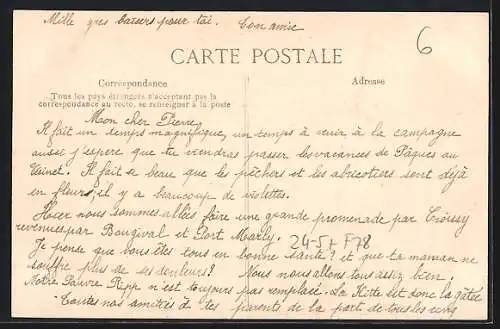 Mille gros baisers pour toi. Ton amie
6
CARTE POSTALE
Correspondance
Adresse
Tous les pays étrangers n'acceptant pas la
correspondance au recto, se renseigner à la poste
Mon cher Pierre,
Il fait un temps magnifique, un temps à venir à la campagne
aussi j'espère que tu viendras passer les vacances de Pâques au
Il fait si beau que les pêchers et les abricotiers sont déjà
en fleurs, il y a beaucoup de violettes.
Hier nous sommes allées faire une grande promenade par Croissy
revenues par Bougival et Port Marly.
24-5+ F78
Je pense que vous êtes tous en bonne santé? et que ta maman ne
souffre plus de ses douleurs? Nous nous allons tous assez bien.
Notre Pauvre n'est toujours pas remplacé. La Kitte est donc la gâtée
Toutes nos amitiés à tes parents de la part de tous les cinq